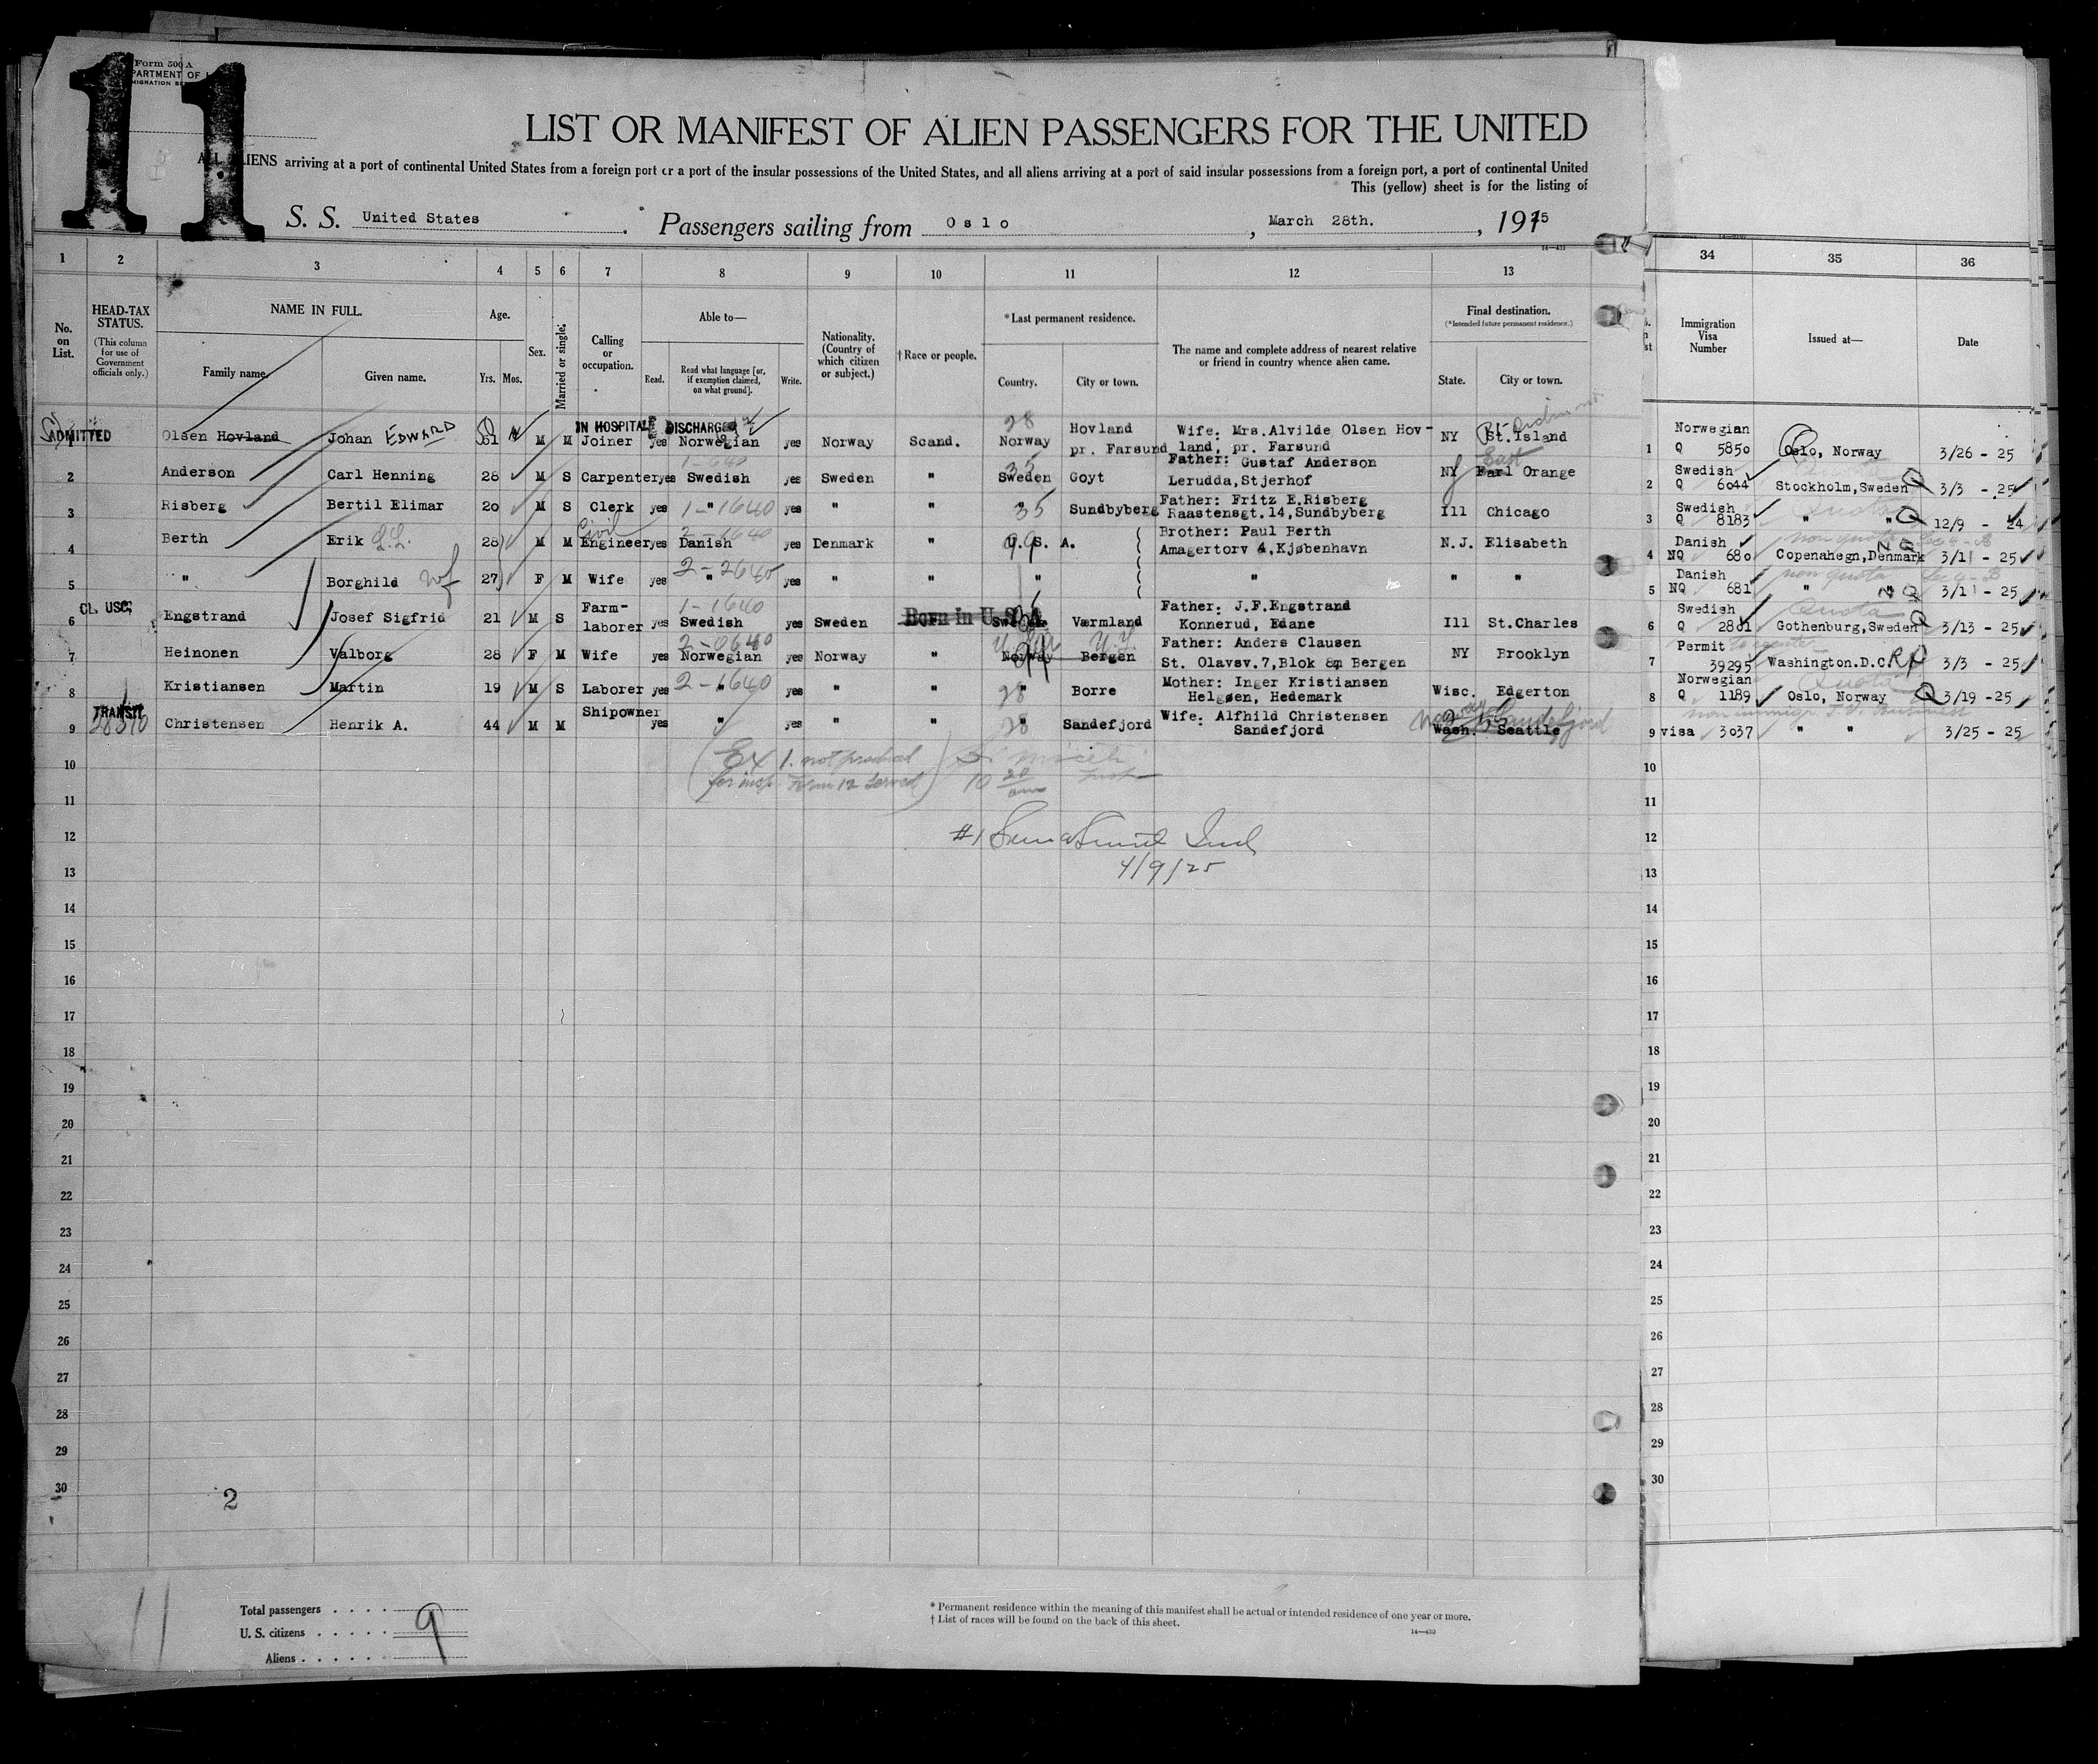 11
Form 500 A
LIST OR MANIFEST OF ALIEN PASSENGERS FOR THE UNITED
ALIENS arriving at a port of continental United States from a foreign port or a port of the insular possessions of the United States, and all aliens arriving at a port of said insular possessions from a foreign port, a port of continental United
This (yellow) sheet is for the listing of
S. S. United States . Passengers sailing from Oslo , March 28th. , 19
1 2 3 4 5 6 7 8 9 10 11 12 13 34 35 36
No. on List.
HEAD-TAX STATUS.
(This column for use of Government officials only.)
NAME IN FULL.
Family name. Given name.
Age.
Yrs. Mos.
Sex.
Married or single.
Calling or occupation.
Able to—
Read. Read what language [or, if exemption claimed, on what ground]. Write.
Nationality. (Country of which citizen or subject.)
† Race or people.
* Last permanent residence.
Country. City or town.
The name and complete address of nearest relative or friend in country whence alien came.
Final destination.
(* Intended future permanent residence.)
State. City or town.
Immigration Visa Number
Issued at—
Date
ADMITTED IN HOSPITAL DISCHARGED
1 Olsen Hovland Johan EDWARD 51 M M Joiner yes Norwegian yes Norway Scand. 28 Norway Hovland pr. Farsund Wife: Mrs. Alvilde Olsen Hovland, pr. Farsund NY St. Island
2 Anderson Carl Henning 28 M S Carpenter yes Swedish yes Sweden " 35 Sweden Goyt Father: Gustaf Anderson Lerudda, Stjerhof NY Earl East Orange
3 Risberg Bertil Elimar 20 M S Clerk yes " 1-1640 yes " " 35 Sundbyberg Father: Fritz E. Risberg Raastensgt. 14, Sundbyberg Ill Chicago
4 Berth Erik 28 M M Civil Engineer yes Danish yes Denmark " U. S. A. Brother: Paul Berth Amagertorv 4, Kjøbenhavn N.J. Elisabeth
5 " Borghild wf 27 F M Wife yes 2-2640 " yes " " " " " "
CL. USC;
6 Engstrand Josef Sigfrid 21 M S Farm-laborer yes 1-1640 Swedish yes Sweden Born in U.S.A. Sweden Værmland Father: J.F. Engstrand Konnerud, Edane Ill St. Charles
7 Heinonen Valborg 28 F M Wife yes 2-0640 Norwegian yes Norway " Norway Bergen Father: Anders Clausen St. Olavsv. 7, Blok 8 Bergen NY Brooklyn
8 Kristiansen Martin 19 M S Laborer yes 2-1640 " yes " " 28 " Borre Mother: Inger Kristiansen Helgøen, Hedemark Wisc. Edgerton
TRANSIT
9 Christensen Henrik A. 44 M M Shipowner yes " yes " " 28 " Sandefjord Wife: Alfhild Christensen Sandefjord Wash. Seattle Norway Sandefjord
(Ex 1. not produced
for insp. Form 12 served)
#1
4/9/25
10
11
12
13
14
15
16
17
18
19
20
21
22
23
24
25
26
27
28
29
30
2
11
Total passengers . . . . 9
U. S. citizens . . . . .
Aliens . . . . . .
* Permanent residence within the meaning of this manifest shall be actual or intended residence of one year or more.
† List of races will be found on the back of this sheet.
14—430
1 Norwegian Q 5850 Oslo, Norway 3/26 - 25
2 Swedish Q 6044 Stockholm, Sweden Q 3/3 - 25
3 Swedish Q 8183 " " Quota Q 12/9 - 24
4 Danish NQ 680 Copenahegn, Denmark non quota 3/11 - 25
5 Danish NQ 681 " " non quota 3/11 - 25
6 Swedish Q 2801 Gothenburg, Sweden Quota Q 3/13 - 25
7 Permit 39295 Washington. D.C. RP 3/3 - 25
8 Norwegian Q 1189 Oslo, Norway Quota Q 3/19 - 25
9 visa 3037 " " 3/25 - 25
10
11
12
13
14
15
16
17
18
19
20
21
22
23
24
25
26
27
28
29
30